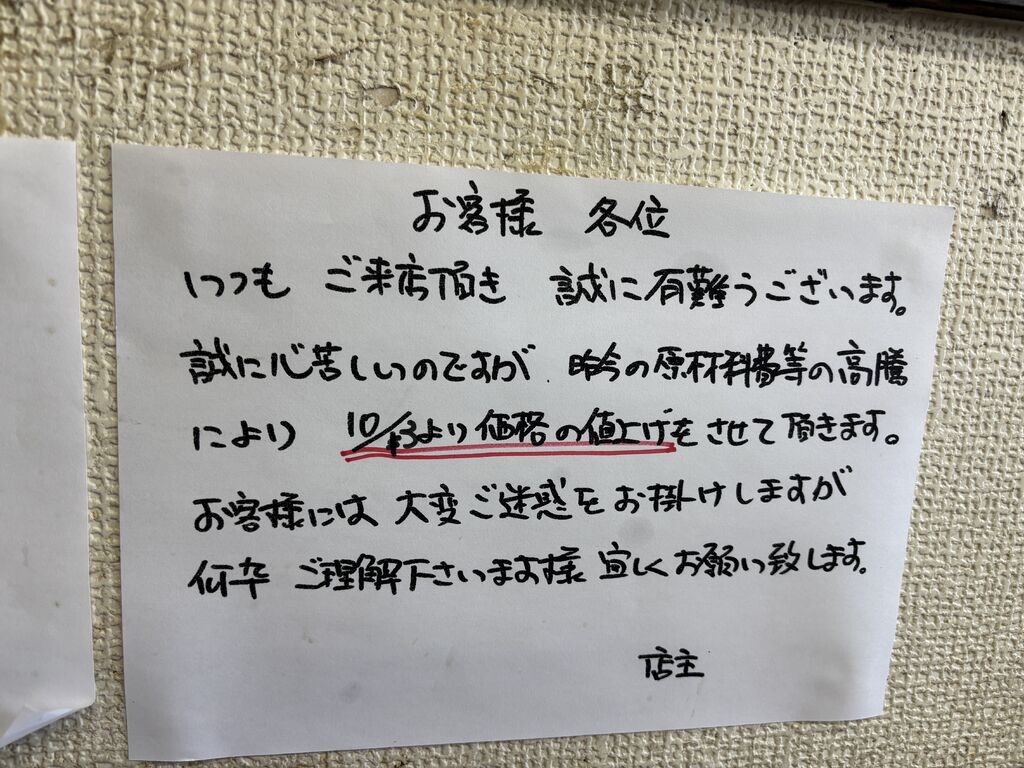 お客様 各位
いつも ご来店頂き 誠に有難うございます。
誠に心苦しいのですが、昨今の原材料費等の高騰
により 10/13より価格の値上げをさせて頂きます。
お客様には大変ご迷惑をお掛けしますが
何卒 ご理解下さいます様 宜しくお願い致します。
店主